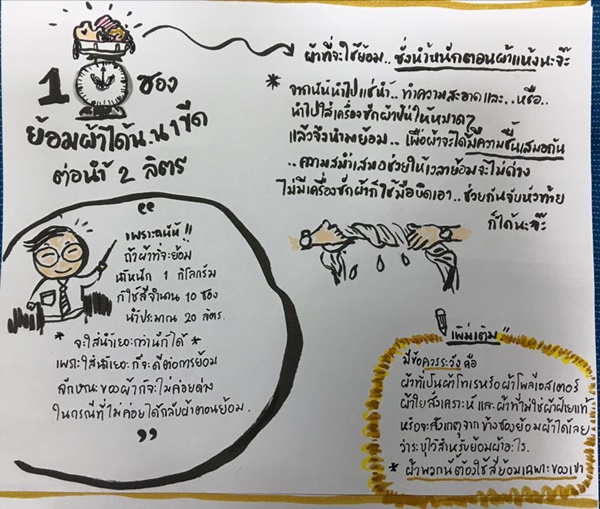 1 ซอง
ย้อมผ้าได้น.น 1 ขีด
ต่อน้ำ 2 ลิตร
ผ้าที่จะใช้ย้อม.. ชั่งน้ำหนักตอนผ้าแห้งนะจ๊ะ
* จากนั้นนำไปแช่น้ำ.. ทำความสะอาดและ..หรือ..
นำไปใส่เครื่องซักผ้าปั่นให้หมาดๆ
แล้วจึงนำมาย้อม.. เพื่อผ้าจะได้มีความชื้นเสมอกัน
..ความสม่ำเสมอช่วยให้เวลาย้อมจะไม่ด่าง
ไม่มีเครื่องซักผ้าก็ใช้มือบิดเอา..ช่วยกันจับหัวท้าย
ก็ได้นะจ๊ะ
"
เพราะฉนั้น !!
ถ้าผ้าที่จะย้อม
น้ำหนัก 1 กิโลกรัม
ก็ใช้สีจำนวน 10 ซอง
น้ำประมาณ 20 ลิตร
* จะใส่น้ำเยอะกว่านี้ก็ได้ *
เพราะใส่น้ำเยอะก็จะดีต่อการย้อม
ลักษณะของผ้าก็จะไม่ค่อยด่าง
ในกรณีที่ไม่ค่อยได้กลับผ้าตอนย้อม.
"
เพิ่มเติม !!
มีข้อควรระวัง คือ
ผ้าที่เป็นผ้าโทเรหรือผ้าโพลีเอสเตอร์
ผ้าใยสังเคราะห์ และผ้าที่ไม่ใช่ผ้าฝ้ายแท้
หรือจะสังเกตุจากข้างซองย้อมผ้าได้เลย
ว่าระบุไว้สำหรับย้อมผ้าอะไร.
* ผ้าพวกนี้ต้องใช้สีย้อมเฉพาะของเขา